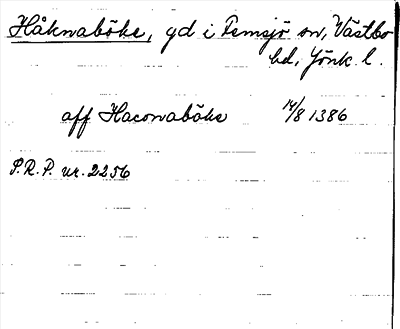 Håknaböke, gd i Femsjö sn, Västbo
hd, Jönk. l.
aff Haconaböke 14/8 1386
S.R.P. nr. 2256